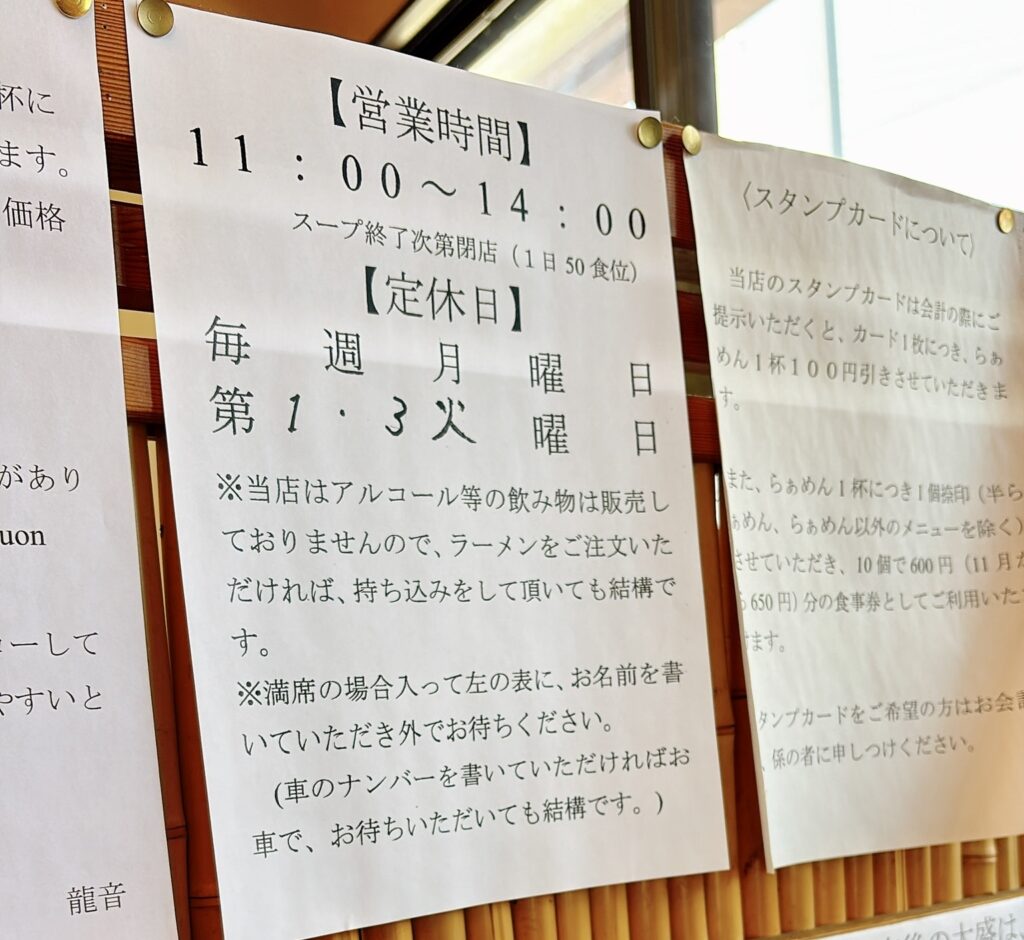 杯に
ます。
価格
があり
uon
ーして
やすいと
龍音
【営業時間】
11：00～14：00
スープ終了次第閉店（1日50食位）
【定休日】
毎週月曜日
第1・3火曜日
※当店はアルコール等の飲み物は販売し
ておりませんので、ラーメンをご注文いた
だければ、持ち込みをして頂いても結構で
す。
※満席の場合入って左の表に、お名前を書
いていただき外でお待ちください。
(車のナンバーを書いていただければお
車で、お待ちいただいても結構です。)
〈スタンプカードについて〉
当店のスタンプカードは会計の際にご
提示いただくと、カード1枚につき、らぁ
めん1杯100円引きさせていただきま
す。
また、らぁめん1杯につき1個捺印（半ら
ぁめん、らぁめん以外のメニューを除く）
させていただき、10個で600円（11月か
ら650円）分の食事券としてご利用いただ
けます。
タンプカードをご希望の方はお会計
、係の者に申しつけください。
の大盛は、